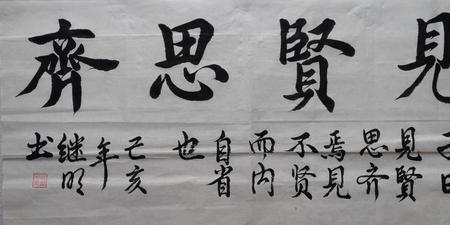 見賢思齊
子曰
見賢
思齐
焉見
不贤
而内
自省
也
己亥
年
继明
书